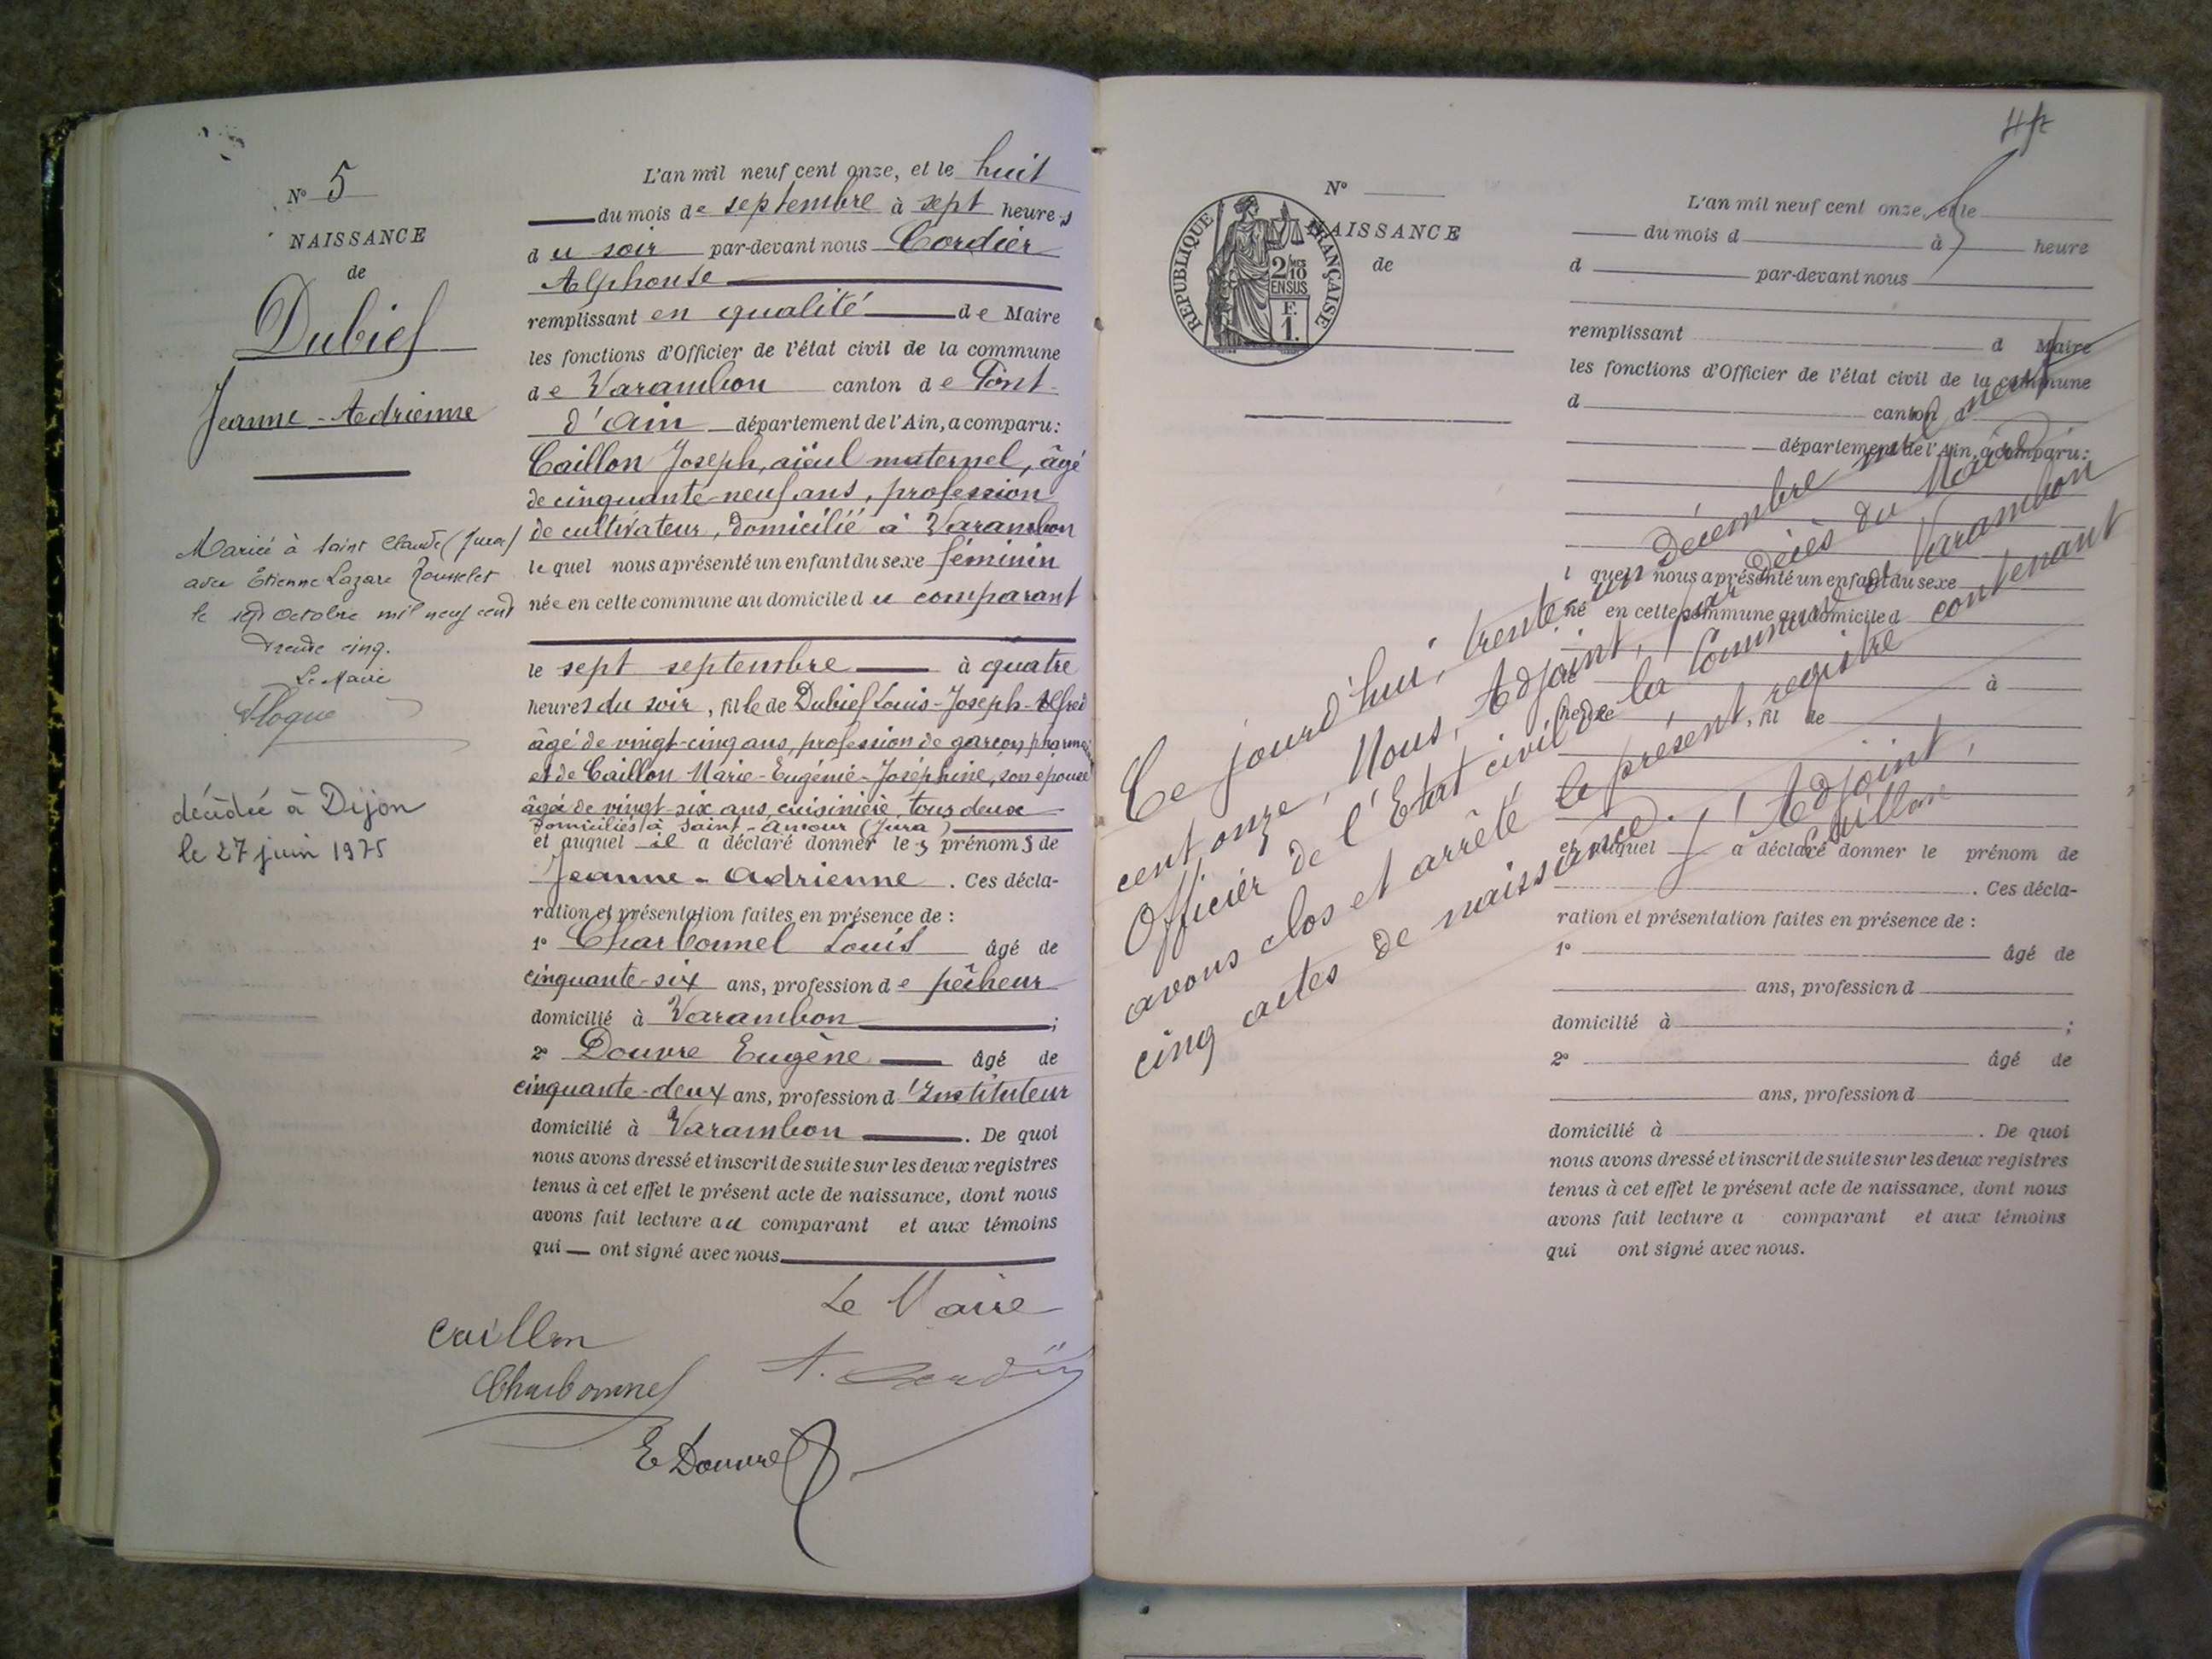 N° 5
NAISSANCE
de
Dubief
Jeanne-Adrienne
Mariée à Saint Claude (Jura)
avec Etienne Lazare Rousselet
le octobre mil neuf cent
trente cinq.
Le Maire
décédée à Dijon
le 27 juin 1975
L'an mil neuf cent onze, et le huit
du mois de septembre à sept heures
du soir par-devant nous Cordier
Alphonse
remplissant en qualité de Maire
les fonctions d'Officier de l'état civil de la commune
de Varambon canton de Pont-
d'Ain département de l'Ain, a comparu:
Caillon Joseph, aïeul maternel, âgé
de cinquante-neuf ans, profession
de cultivateur, domicilié à Varambon
lequel nous a présenté un enfant du sexe féminin
née en cette commune au domicile du comparant
le sept septembre à quatre
heures du soir, fille de Dubief Louis-Joseph-Alfred
âgé de vingt-cinq ans, profession de garçon pharmacien
et de Caillon Marie-Eugénie-Joséphine, son épouse
âgée de vingt-six ans, cuisinière, tous deux
domiciliés à Saint-Amour (Jura)
et auquel il a déclaré donner les prénoms de
Jeanne-Adrienne. Ces décla-
ration et présentation faites en présence de :
1° Charbonnel Louis âgé de
cinquante-six ans, profession de pêcheur
domicilié à Varambon ;
2° Douvre Eugène âgé de
cinquante-deux ans, profession d'Instituteur
domicilié à Varambon. De quoi
nous avons dressé et inscrit de suite sur les deux registres
tenus à cet effet le présent acte de naissance, dont nous
avons fait lecture au comparant et aux témoins
qui ont signé avec nous
Le Maire
Caillon
A. Cordier
Charbonnel
E Douvre
RÉPUBLIQUE FRANÇAISE
2/10 MES
EN SUS
F.
1.
N°
NAISSANCE
de
L'an mil neuf cent onze, et le
du mois d à heure
d par-devant nous
remplissant d Maire
les fonctions d'Officier de l'état civil de la commune
d canton d
département de l'Ain, a comparu:
l quel nous a présenté un enfant du sexe
né en cette commune au domicile d
le à
heure , fil de
et auquel a déclaré donner le prénom de
. Ces décla-
ration et présentation faites en présence de :
1° âgé de
ans, profession d
domicilié à ;
2° âgé de
ans, profession d
domicilié à . De quoi
nous avons dressé et inscrit de suite sur les deux registres
tenus à cet effet le présent acte de naissance, dont nous
avons fait lecture a comparant et aux témoins
qui ont signé avec nous.
Ce jourd'hui, trente-un décembre mil neuf
cent onze, Nous, Adjoint, par décès du Maire
Officier de l'Etat civil de la Commune de Varambon
avons clos et arrêté le présent registre contenant
cinq actes de naissance.
l'Adjoint,